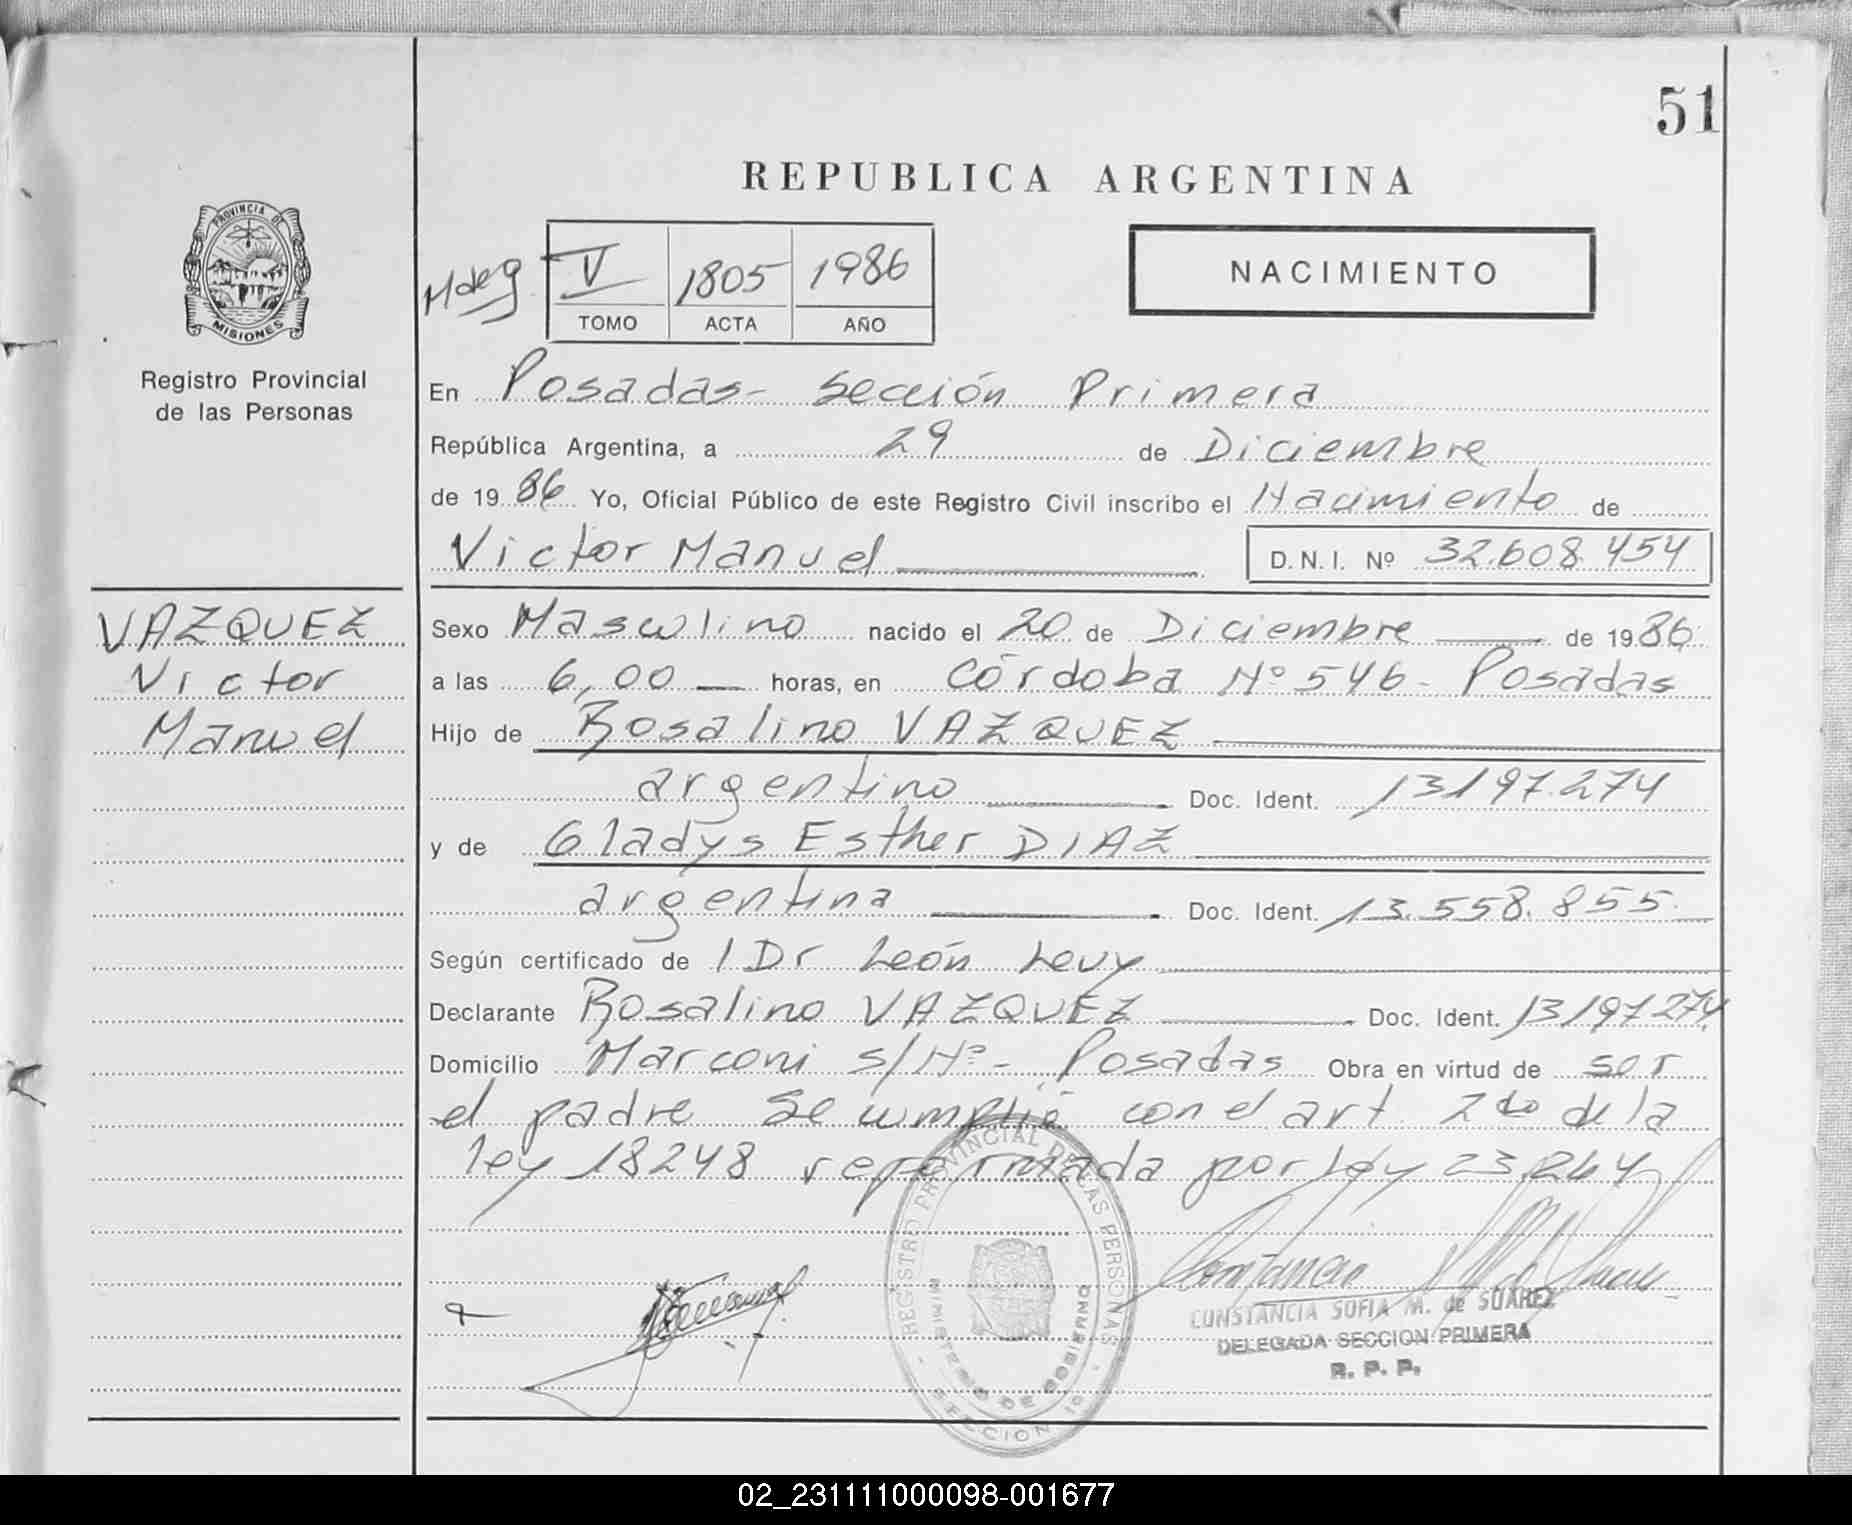 51
REPUBLICA ARGENTINA
PROVINCIA DE
MISIONES
Registro Provincial
de las Personas
V 1805 1986
TOMO ACTA AÑO
NACIMIENTO
En Posadas - Sección Primera
República Argentina, a 29 de Diciembre
de 1986 Yo, Oficial Público de este Registro Civil inscribo el Nacimiento de
Victor Manuel D.N.I. Nº 32.608.454
VAZQUEZ
Victor
Manuel
Sexo Masculino nacido el 20 de Diciembre de 1986
a las 6,00 horas, en Córdoba Nº 546 - Posadas
Hijo de Rosalino VAZQUEZ
argentino Doc. Ident. 13197.274
y de Gladys Esther DIAZ
argentina Doc. Ident. 13.558.855
Según certificado de l Dr León Levy
Declarante Rosalino VAZQUEZ Doc. Ident. 13197274
Domicilio Marconi s/Nº - Posadas Obra en virtud de ser
el padre Se cumplió con el art. 2do de la
ley 18248 reformada por Ley 23.264
REGISTRO PROVINCIAL DE LAS PERSONAS
MINISTERIO DE GOBIERNO
CONSTANCIA SOFIA M. de SUAREZ
DELEGADA SECCION PRIMERA
R. P. P.
02_231111000098-001677